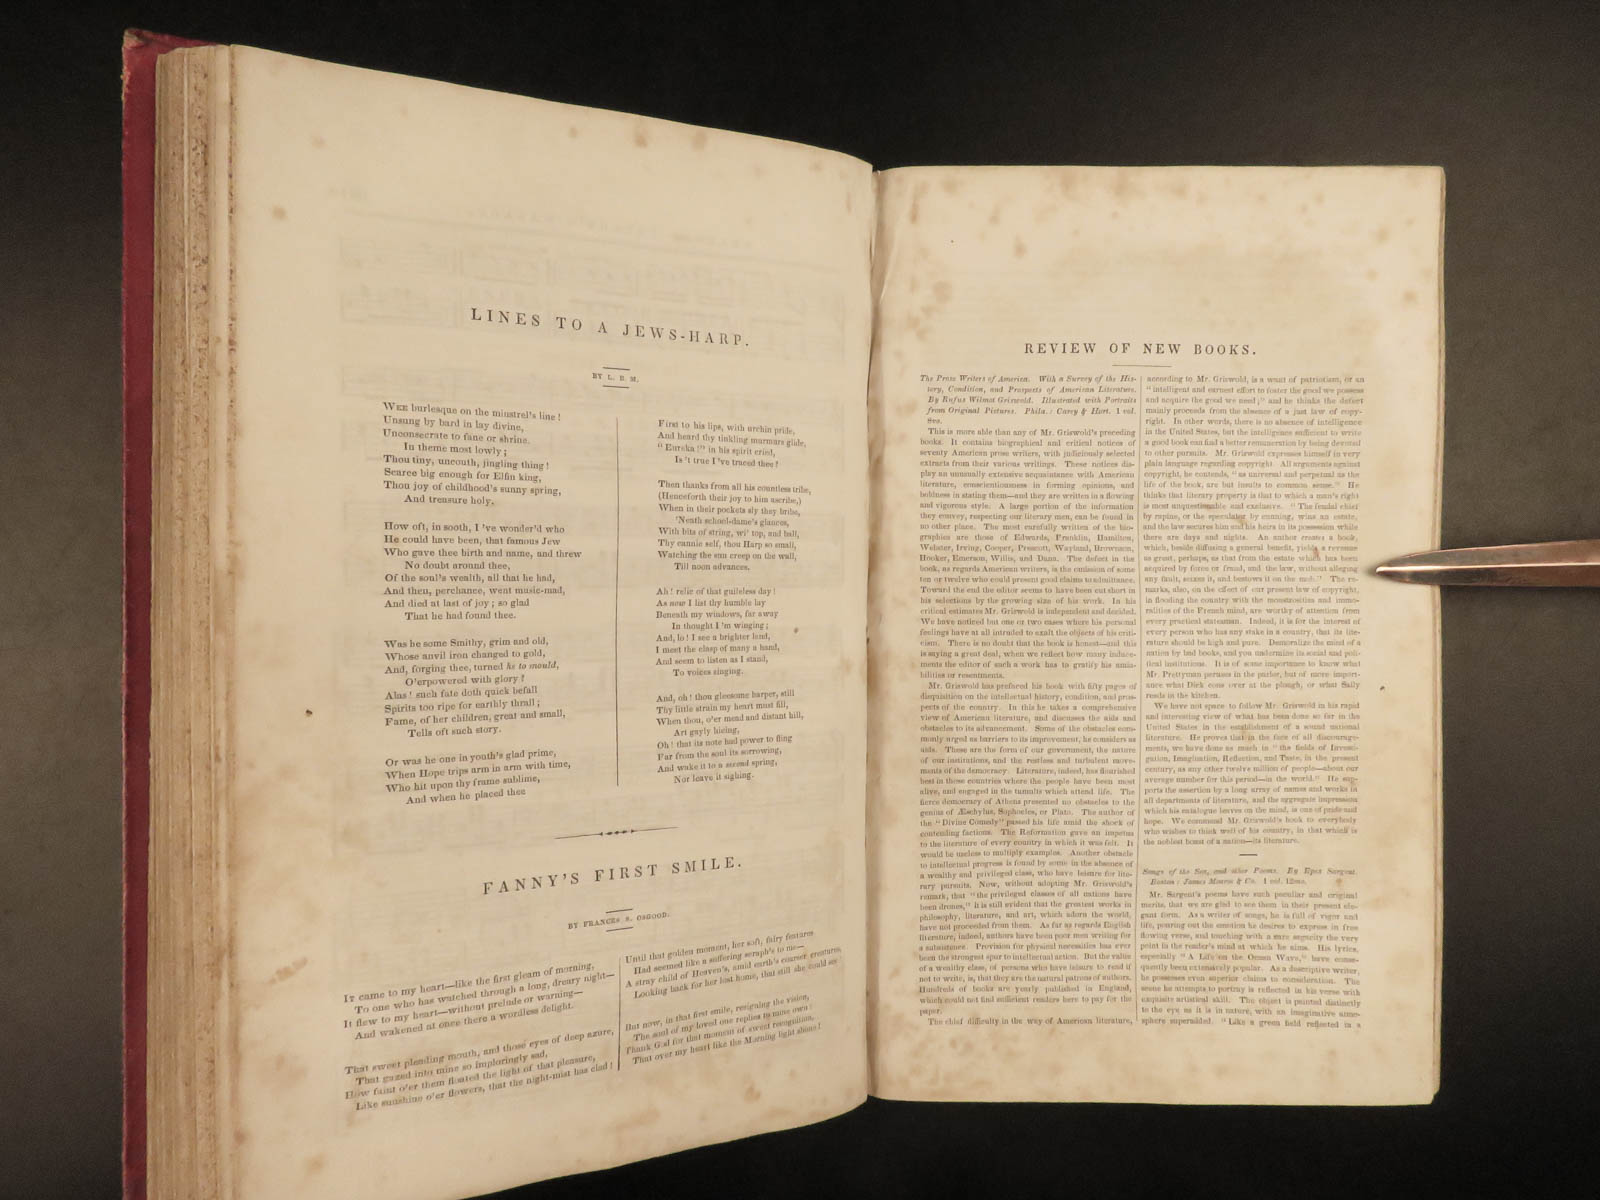 LINES TO A JEWS-HARP.
BY L. B. M.
WEE burlesque on the minstrel's line!
Unsung by bard in lay divine,
Unconsecrate to fane or shrine.
In theme most lowly;
Thou tiny, uncouth, jingling thing!
Scarce big enough for Elfin king,
Thou joy of childhood's sunny spring,
And treasure holy.
How oft, in sooth, I 've wonder'd who
He could have been, that famous Jew
Who gave thee birth and name, and threw
No doubt around thee,
Of the soul's wealth, all that he had,
And then, perchance, went music-mad,
And died at last of joy; so glad
That he had found thee.
Was he some Smithy, grim and old,
Whose anvil iron changed to gold,
And, forging thee, turned he to mould,
O'erpowered with glory?
Alas! such fate doth quick befall
Spirits too ripe for earthly thrall;
Fame, of her children, great and small,
Tells oft such story.
Or was he one in youth's glad prime,
When Hope trips arm in arm with time,
Who hit upon thy frame sublime,
And when he placed thee
First to his lips, with urchin pride,
And heard thy tinkling murmurs glide,
"Eureka!" in his spirit cried,
Is 't true I 've traced thee?
Then thanks from all his countless tribe,
(Henceforth their joy to him ascribe,)
When in their pockets sly they bribe,
'Neath school-dame's glances,
With bits of string, wi' top, and ball,
Thy cannie self, thou Harp so small,
Watching the sun creep on the wall,
Till noon advances.
Ah! relic of that guileless day!
As now I list thy humble lay
Beneath my windows, far away
In thought I 'm winging;
And, lo! I see a brighter land,
I meet the clasp of many a hand,
And seem to listen as I stand,
To voices singing.
And, oh! thou gleesome harper, still
Thy little strain my heart must fill,
When thou, o'er mead and distant hill,
Art gayly hieing,
Oh! that its note had power to fling
Far from the soul its sorrowing,
And wake it to a second spring,
Nor leave it sighing.
FANNY'S FIRST SMILE.
BY FRANCES S. OSGOOD.
IT came to my heart—like the first gleam of morning,
To one who has watched through a long, dreary night—
It flew to my heart—without prelude or warning—
And wakened at once there a wordless delight.
That sweet pleading mouth, and those eyes of deep azure,
That gazed into mine so imploringly sad,
How faint o'er them floated the light of that pleasure,
Like sunshine o'er flowers, that the night-mist has clad!
Until that golden moment, her soft, fairy features
Had seemed like a suffering seraph's to me—
A stray child of Heaven's, amid earth's coarser creatures,
Looking back for her lost home, that still she could see
But now, in that first smile, resigning the vision,
The soul of my loved one replies to mine own:
Thank God for that moment of sweet recognition,
That over my heart like the Morning light shone!
REVIEW OF NEW BOOKS.
The Prose Writers of America. With a Survey of the His-
tory, Condition, and Prospects of American Literature.
By Rufus Wilmot Griswold. Illustrated with Portraits
from Original Pictures. Phila.: Carey & Hart. 1 vol.
8vo.
This is more able than any of Mr. Griswold's preceding
books. It contains biographical and critical notices of
seventy American prose writers, with judiciously selected
extracts from their various writings. These notices dis-
play an unusually extensive acquaintance with American
literature, conscientiousness in forming opinions, and
boldness in stating them—and they are written in a flowing
and vigorous style. A large portion of the information
they convey, respecting our literary men, can be found in
no other place. The most carefully written of the bio-
graphies are those of Edwards, Franklin, Hamilton,
Webster, Irving, Cooper, Prescott, Wayland, Brownson,
Hooker, Emerson, Willis, and Dana. The defect in the
book, as regards American writers, is the omission of some
ten or twelve who could present good claims to admittance.
Toward the end the editor seems to have been cut short in
his selections by the growing size of his work. In his
critical estimates Mr. Griswold is independent and decided.
We have noticed but one or two cases where his personal
feelings have at all intruded to exalt the objects of his criti-
cism. There is no doubt that the book is honest—and this
is saying a great deal, when we reflect how many induce-
ments the editor of such a work has to gratify his amia-
bilities or resentments.
Mr. Griswold has prefaced his book with fifty pages of
disquisition on the intellectual history, condition, and pros-
pects of the country. In this he takes a comprehensive
view of American literature, and discusses the aids and
obstacles to its advancement. Some of the obstacles com-
monly urged as barriers to its improvement, he considers as
aids. These are the form of our government, the nature
of our institutions, and the restless and turbulent move-
ments of the democracy. Literature, indeed, has flourished
best in those countries where the people have been most
alive, and engaged in the tumults which attend life. The
fierce democracy of Athens presented no obstacles to the
genius of Æschylus, Sophocles, or Plato. The author of
the "Divine Comedy" passed his life amid the shock of
contending factions. The Reformation gave an impetus
to the literature of every country in which it was felt. It
would be useless to multiply examples. Another obstacle
to intellectual progress is found by some in the absence of
a wealthy and privileged class, who have leisure for lite-
rary pursuits. Now, without adopting Mr. Griswold's
remark, that "the privileged classes of all nations have
been drones," it is still evident that the greatest works in
philosophy, literature, and art, which adorn the world,
have not proceeded from them. As far as regards English
literature, indeed, authors have been poor men writing for
a subsistence. Provision for physical necessities has ever
been the strongest spur to intellectual action. But the value
of a wealthy class, of persons who have leisure to read if
not to write, is, that they are the natural patrons of authors.
Hundreds of books are yearly published in England,
which could not find sufficient readers here to pay for the
paper.
The chief difficulty in the way of American literature,
according to Mr. Griswold, is a want of patriotism, or an
"intelligent and earnest effort to foster the good we possess
and acquire the good we need;" and he thinks the defect
mainly proceeds from the absence of a just law of copy-
right. In other words, there is no absence of intelligence
in the United States, but the intelligence sufficient to write
a good book can find a better remuneration by being devoted
to other pursuits. Mr. Griswold expresses himself in very
plain language regarding copyright. All arguments against
copyright, he contends, "as universal and perpetual as the
life of the book, are but insults to common sense." He
thinks that literary property is that to which a man's right
is most unquestionable and exclusive. "The feudal chief
by rapine, or the speculator by cunning, wins an estate,
and the law secures him and his heirs in its possession while
there are days and nights. An author creates a book,
which, beside diffusing a general benefit, yields a revenue
as great, perhaps, as that from the estate which has been
acquired by force or fraud, and the law, without alleging
any fault, seizes it, and bestows it on the mob." The re-
marks, also, on the effect of our present law of copyright,
in flooding the country with the monstrosities and immo-
ralities of the French mind, are worthy of attention from
every practical statesman. Indeed, it is for the interest of
every person who has any stake in a country, that its lite-
rature should be high and pure. Demoralize the mind of a
nation by bad books, and you undermine its social and poli-
tical institutions. It is of some importance to know what
Mr. Prettyman peruses in the parlor, but of more import-
ance what Dick cons over at the plough, or what Sally
reads in the kitchen.
We have not space to follow Mr. Griswold in his rapid
and interesting view of what has been done so far in the
United States in the establishment of a sound national
literature. He proves that in the face of all discourage-
ments, we have done as much in "the fields of Investi-
gation, Imagination, Reflection, and Taste, in the present
century, as any other twelve million of people—about our
average number for this period—in the world." He sup-
ports the assertion by a long array of names and works in
all departments of literature, and the aggregate impression
which his catalogue leaves on the mind, is one of pride and
hope. We commend Mr. Griswold's book to everybody
who wishes to think well of his country, in that which is
the noblest boast of a nation—its literature.
Songs of the Sea, and other Poems. By Epes Sargent.
Boston: James Munroe & Co. 1 vol. 12mo.
Mr. Sargent's poems have such peculiar and original
merits, that we are glad to see them in their present ele-
gant form. As a writer of songs, he is full of vigor and
life, pouring out the emotion he desires to express in free
flowing verse, and touching with a sure sagacity the very
point in the reader's mind at which he aims. His lyrics,
especially "A Life on the Ocean Wave," have conse-
quently been extensively popular. As a descriptive writer,
he possesses even superior claims to consideration. The
scene he attempts to portray is reflected in his verse with
exquisite artistical skill. The object is painted distinctly
to the eye as it is in nature, with an imaginative atmo-
sphere superadded. "Like a green field reflected in a